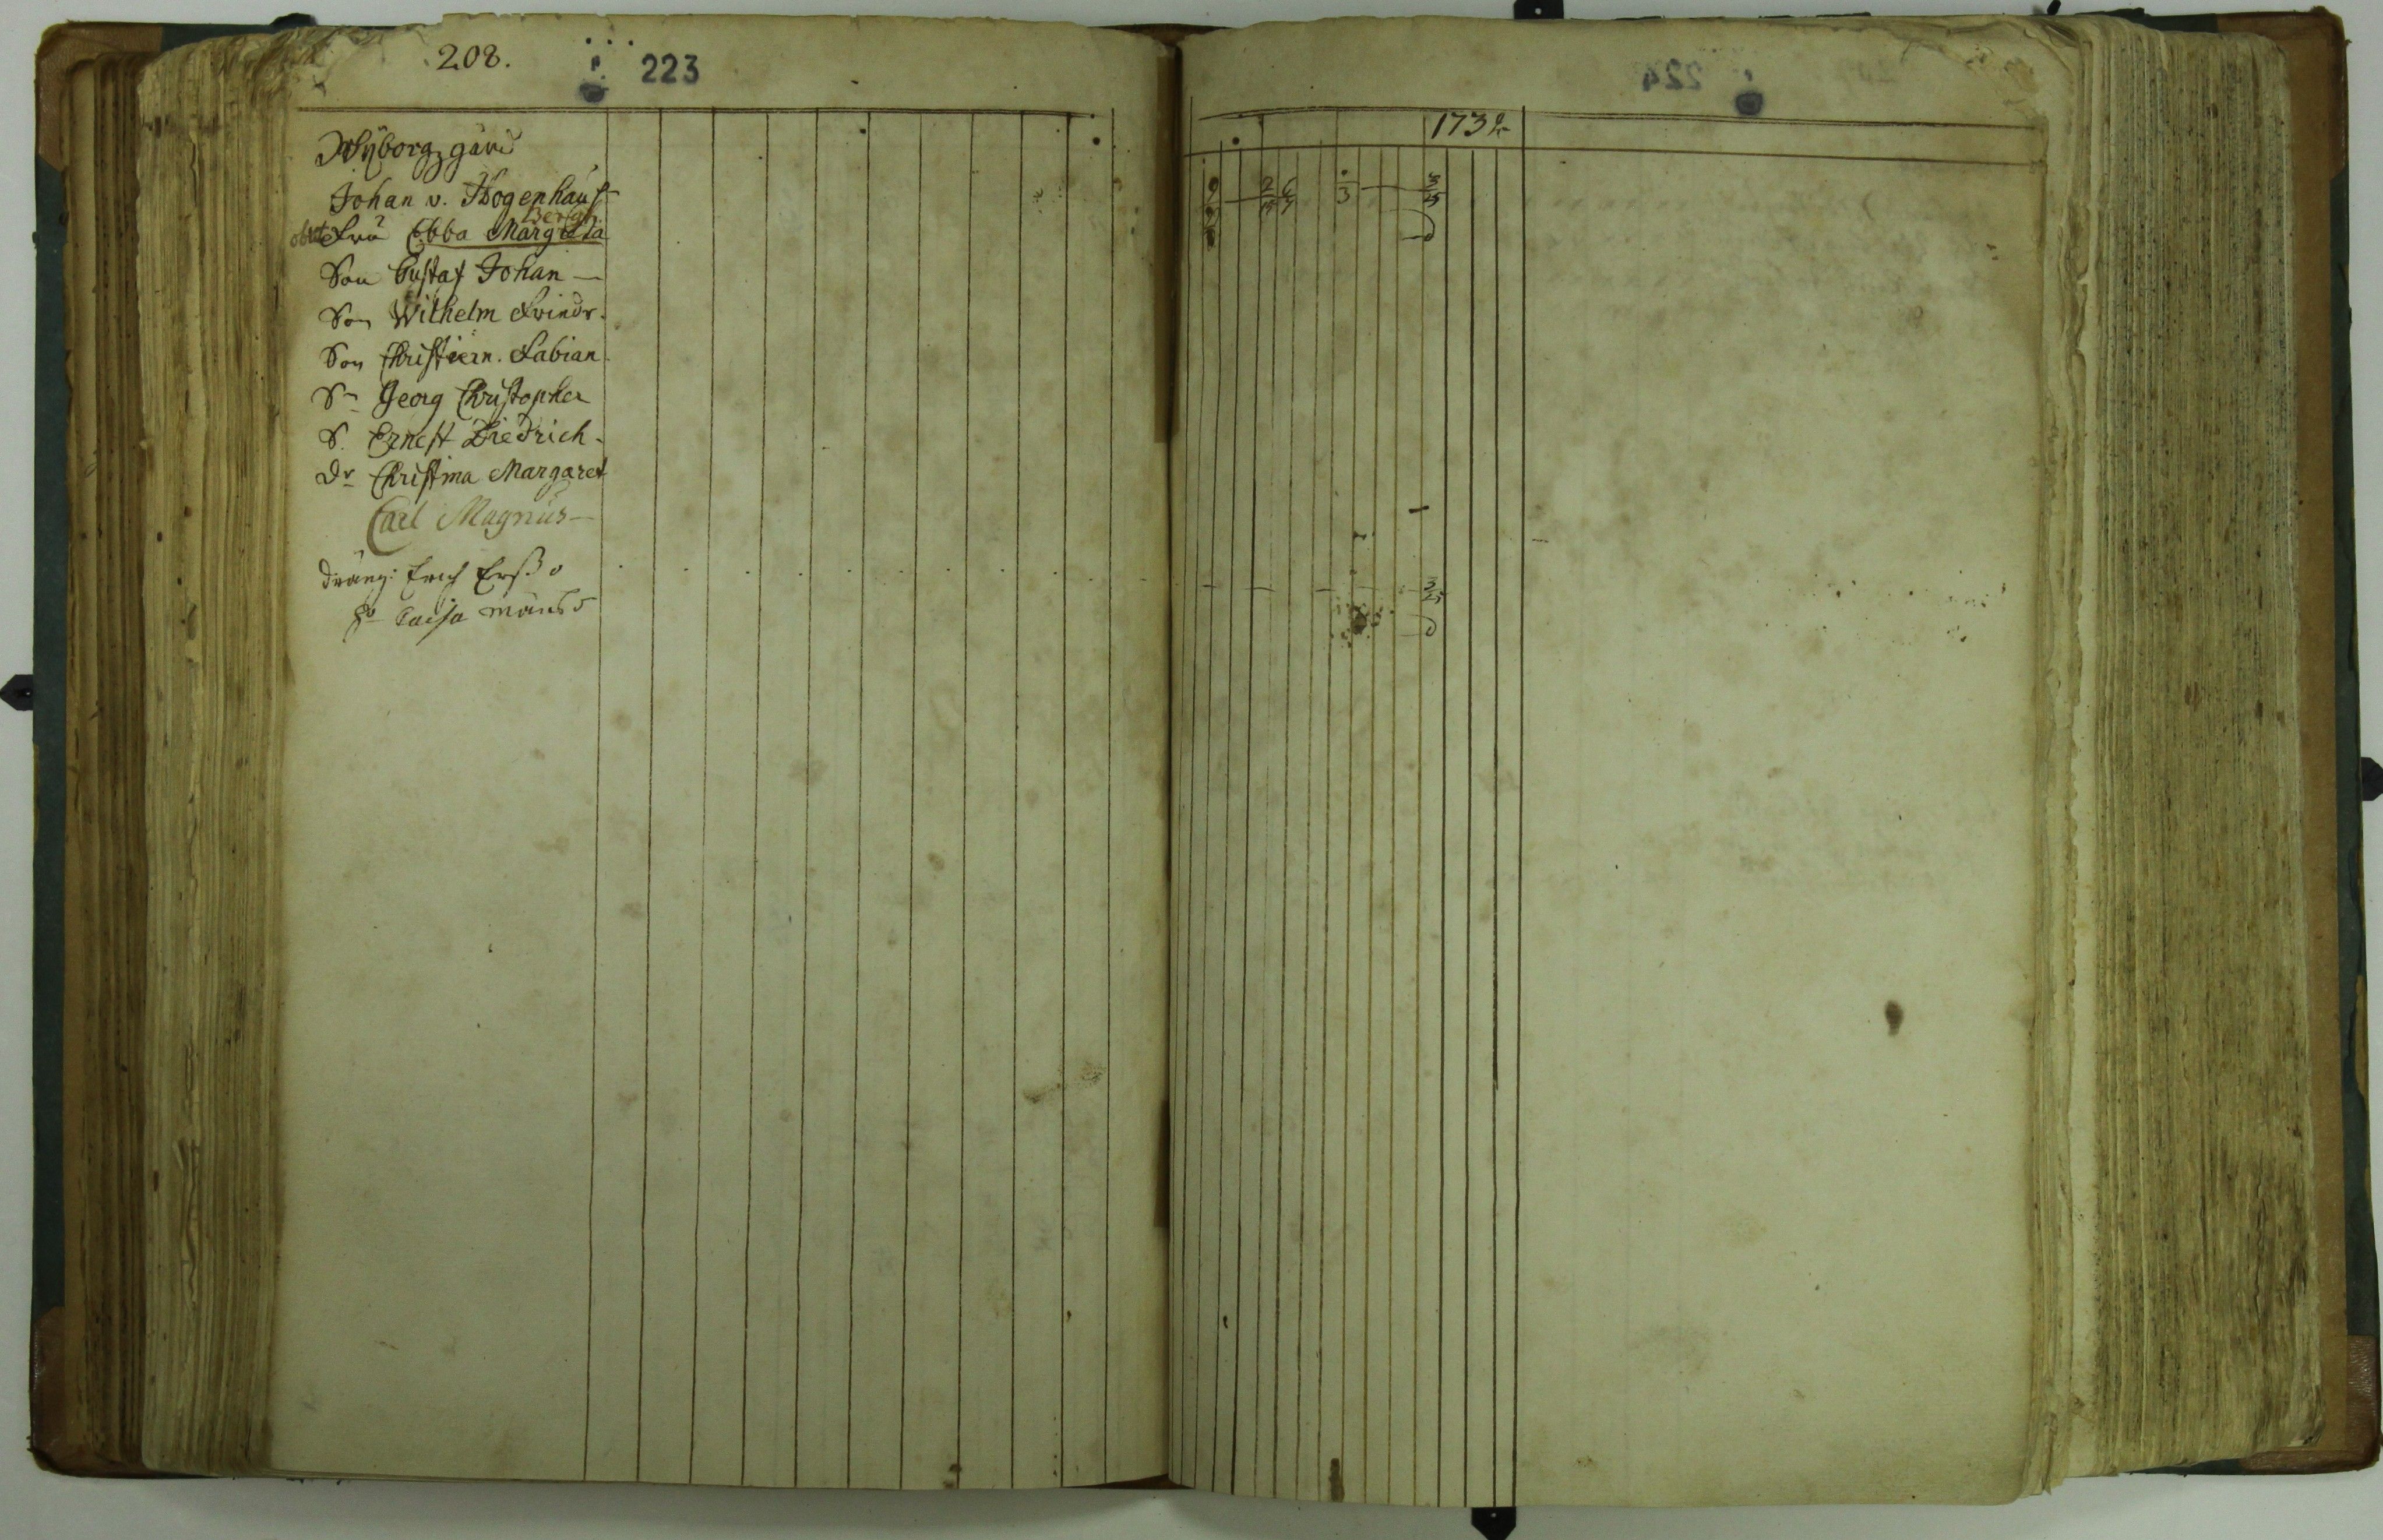 208. 223
Wÿborg gård
Johan v. Hogenhaus
Bergh.
Fru Ebba Margreta
Son Gustaf Johan —
Son Wilhelm Friedr.
Son Christiern. Fabian
Sn Georg Christopher
S. Ernest Diedrich.
Dr Christina Margaret
Carl Magnus —
dräng: Erich Erss. o
Caisa månsd
173
224
2 6
3
3
25
3
25